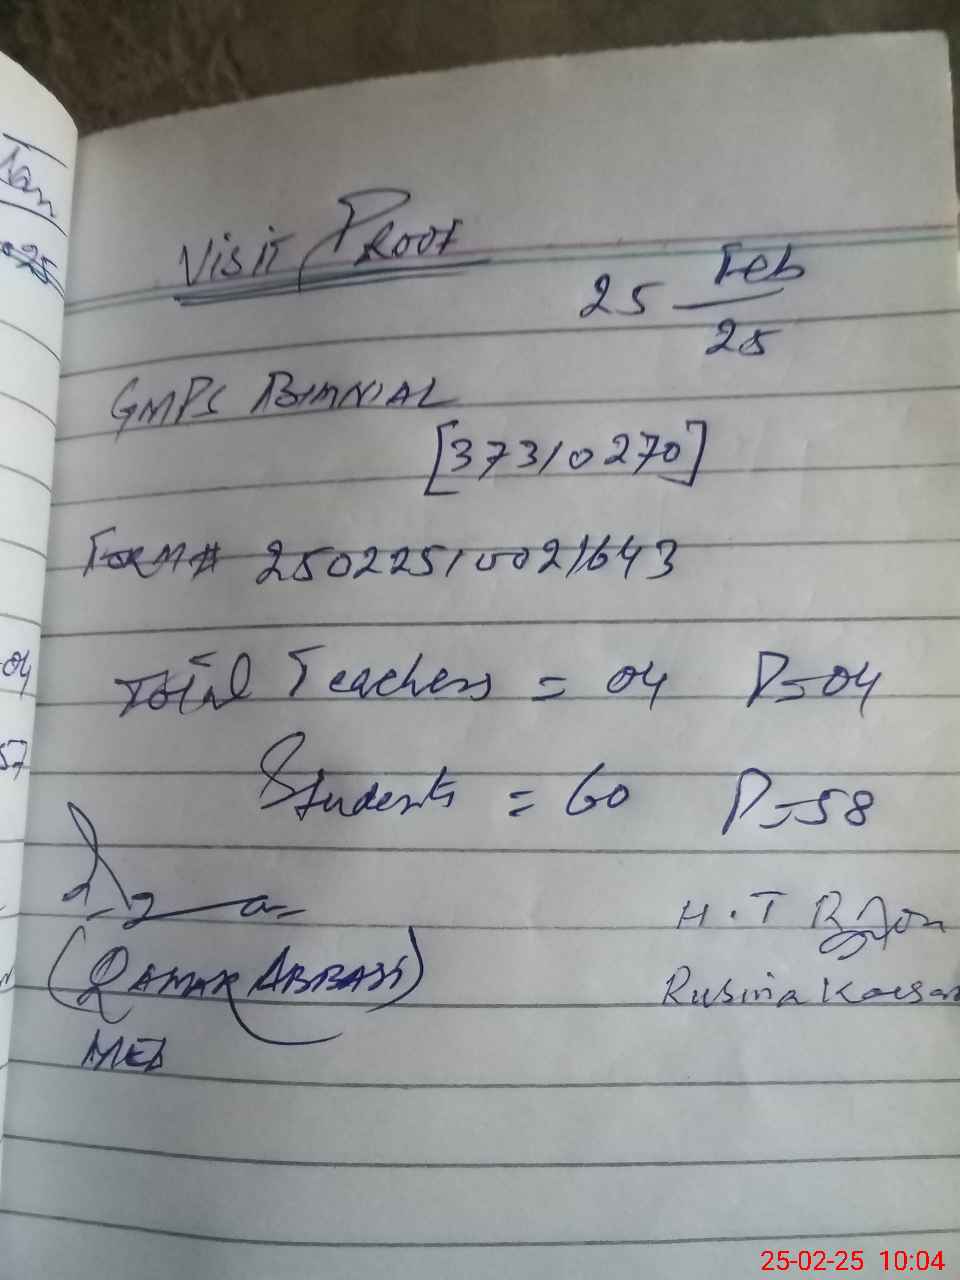 Visit Proof
25 Feb
25
GMPS BIMNIAL
[37310270]
Form# 25022510021643
Total Teachers = 04 P=04
Students = 60 P=58
(QAMAR ABBASI)
MEA
H.T
Rubina Kousar
Jan
04
57
25-02-25 10:04